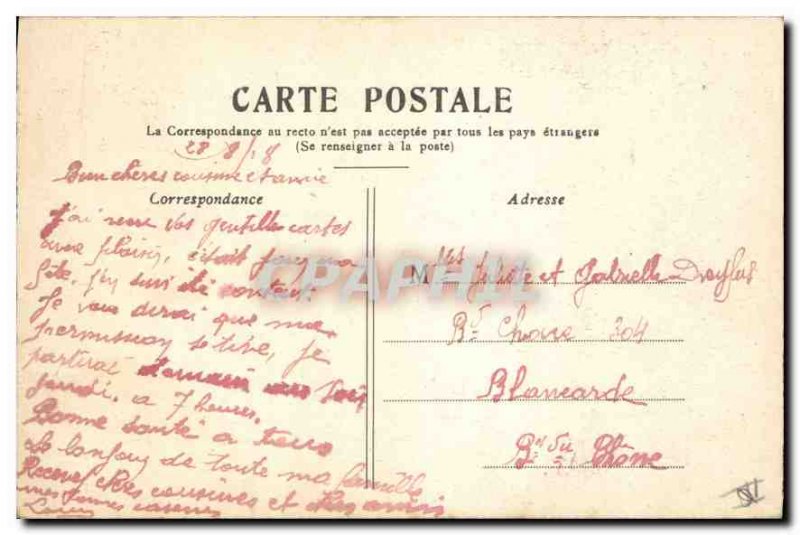 CARTE POSTALE
La Correspondance au recto n'est pas acceptée par tous les pays étrangers
(Se renseigner à la poste)
28 8/18
Bien chères cousine et amie
Correspondance
J'ai reçu vos gentilles cartes
avec plaisir, c'était pour ma
fête. J'y suis été content.
Je vous dirai que ma
permission se tire, je
partirai demain au soir
jeudi. a 7 heures.
Bonne santé a tous
Le bonjour de toute ma famille
Recevez chères cousines et chers amis
mes bonnes caresses
Louis
Adresse
CPAPHIL
M elles et Gabrielle Dreyfus
Bd Chave 304
Blancarde
Bes du Rhône